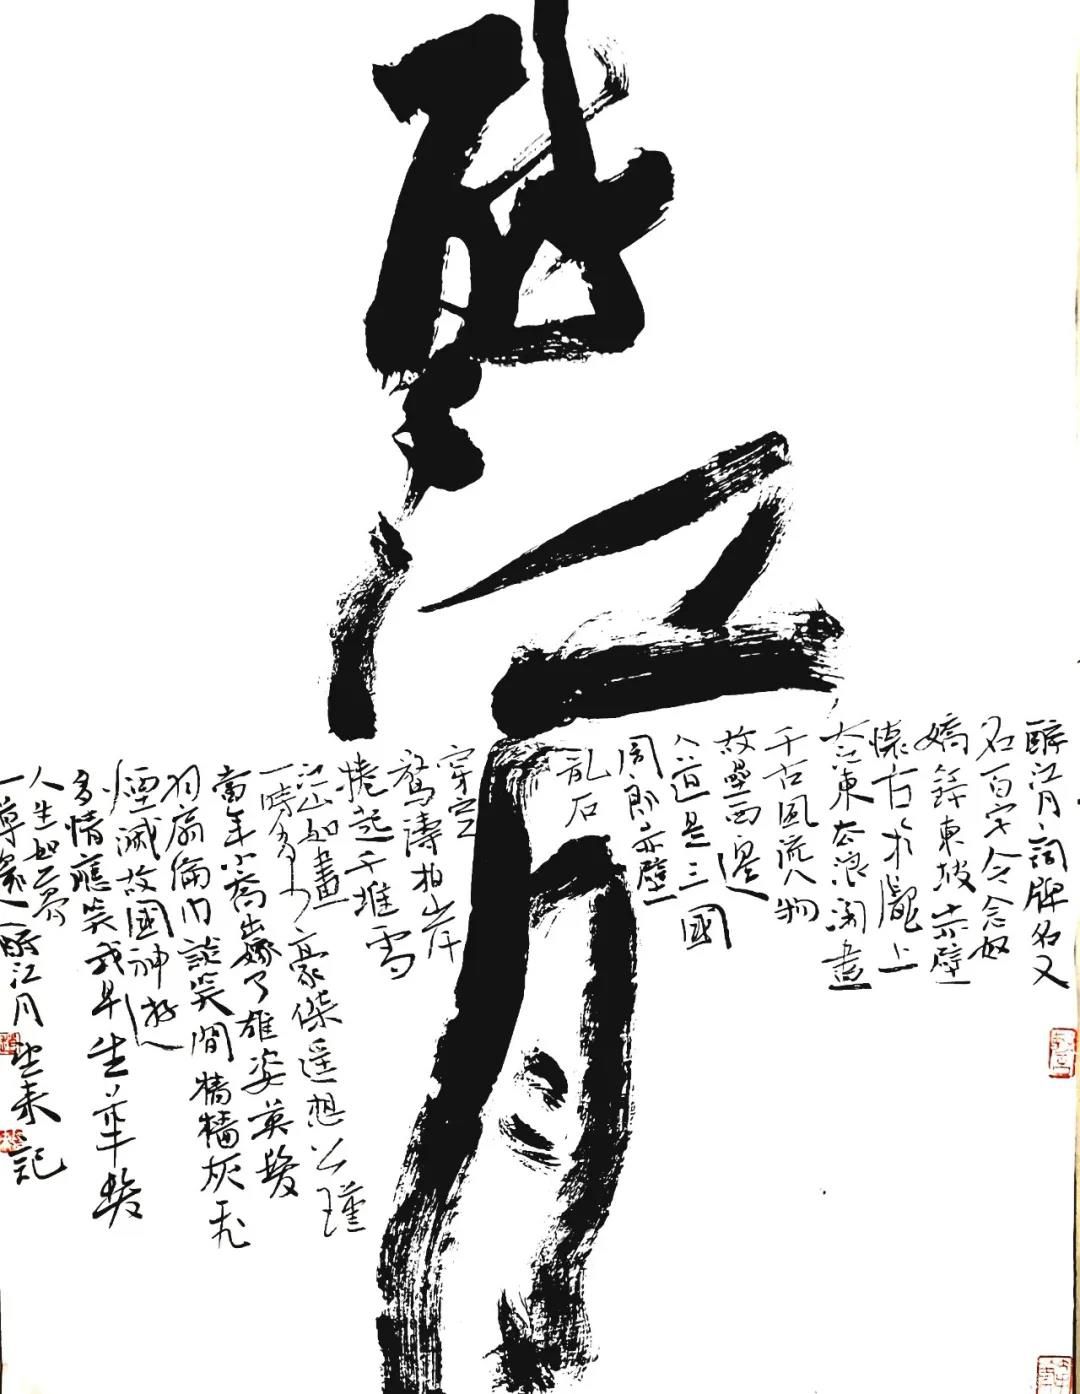 酹江月
酹江月詞牌名又
名百字令念奴
嬌錄東坡赤壁
懷古於隴上
大江東去浪淘盡
千古風流人物
故壘西邊
人道是三國
周郎赤壁
乱石
穿空
驚濤拍岸
捲起千堆雪
江山如畫
一時多少豪傑遥想公瑾
當年小喬出嫁了雄姿英發
羽扇綸巾談笑間檣櫓灰飛
煙滅故國神遊
多情應笑我早生華髮
人生如夢
一尊還酹江月 記